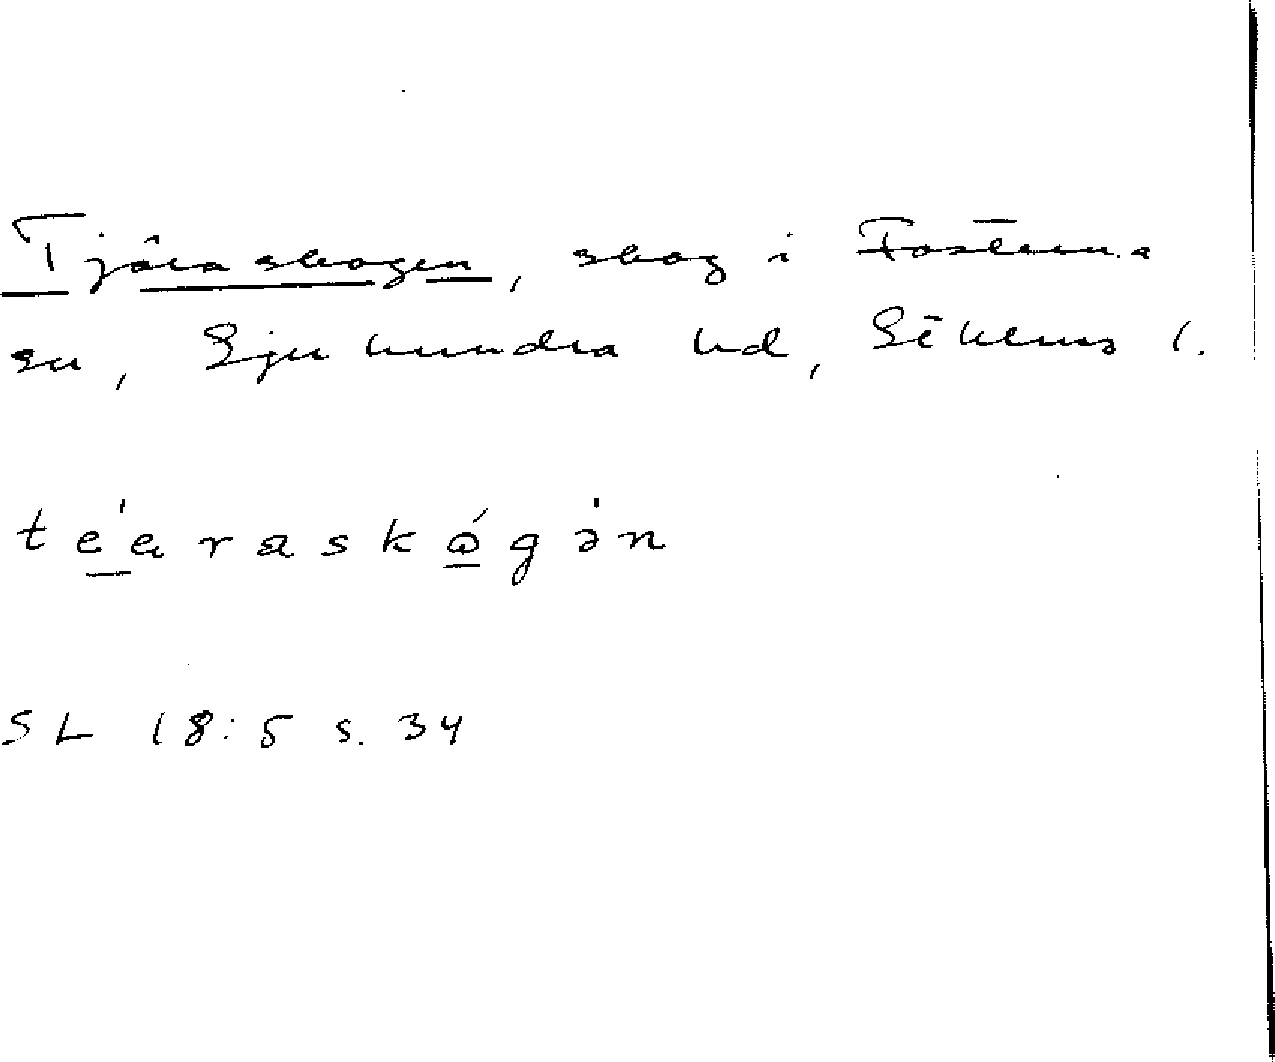 Tjäraskogen, skog i Fasterna
sn, Sjuhundra hd, Sthlms l.
te̱'a̱raskó̱gə̇n
SL 18:5 s. 34